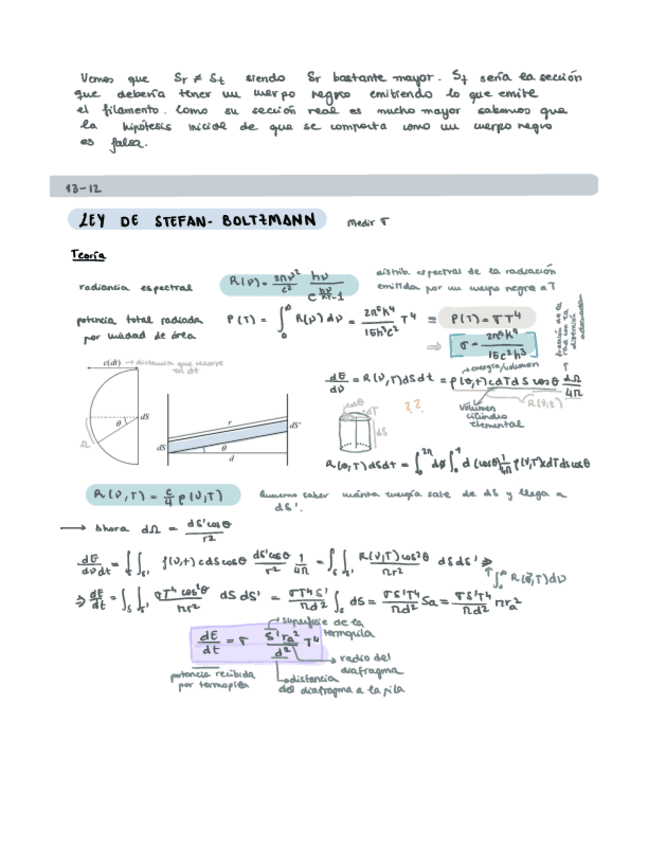 Vemos que Sr ≠ St siendo Sr bastante mayor. St sería la sección
que debería tener un cuerpo negro emitiendo lo que emite
el filamento. Como su sección real es mucho mayor sabemos que
la hipótesis inicial de que se comporta como un cuerpo negro
es falsa.
13-12
LEY DE STEFAN-BOLTZMANN Medir σ
Teoría
radiancia espectral R(ν) = 2πν²/c² hν/(e^(hν/kT)-1) distrib. espectral de la radiación
emitida por un cuerpo negro a T
potencia total radiada
por unidad de área
P(T) = ∫₀^∞ R(ν)dν = 2π⁵k⁴/15h³c² T⁴ ≡ P(T) = σT⁴
⇒ σ = 2π⁵k⁴/15c²h³
c(dt) → distancia que recorre
en dt
energía/volumen
dE/dν = R(ν,T)dSdt = ρ(ν,t)cdTdS cosθ dΩ/4π
volumen
cilindro
elemental
R(ν,t)
??
cosθ
cdT
dS
Ω
θ
dS
dS
r
θ
d
dS'
R(ν,T)dSdt = ∫₀^2π dφ ∫₀^1 d(cosθ) 1/4π ρ(ν,T)cdTdscosθ
R(ν,T) = c/4 ρ(ν,T) Queremos saber cuánta energía sale de dS y llega a
dS'.
→ Ahora dΩ = dS'cosθ/r²
dE/dνdt = ∫s ∫s' ρ(ν,t) cdScosθ dS'cosθ/r² 1/4π = ∫s ∫s' R(ν,T)cos²θ/πr² dS dS' ⇒
∫₀^∞ R(ν,T)dν
⇒ dE/dt = ∫s ∫s' σT⁴cos²θ/πr² dS dS' = σT⁴S'/πd² ∫s dS = σS'T⁴/πd² Sa = σS'T⁴/πd² πra²
superficie de la
termopila
dE/dt = σ S'ra²/d² T⁴
radio del
diafragma
potencia recibida
por termopila
distancia
del diafragma a la pila